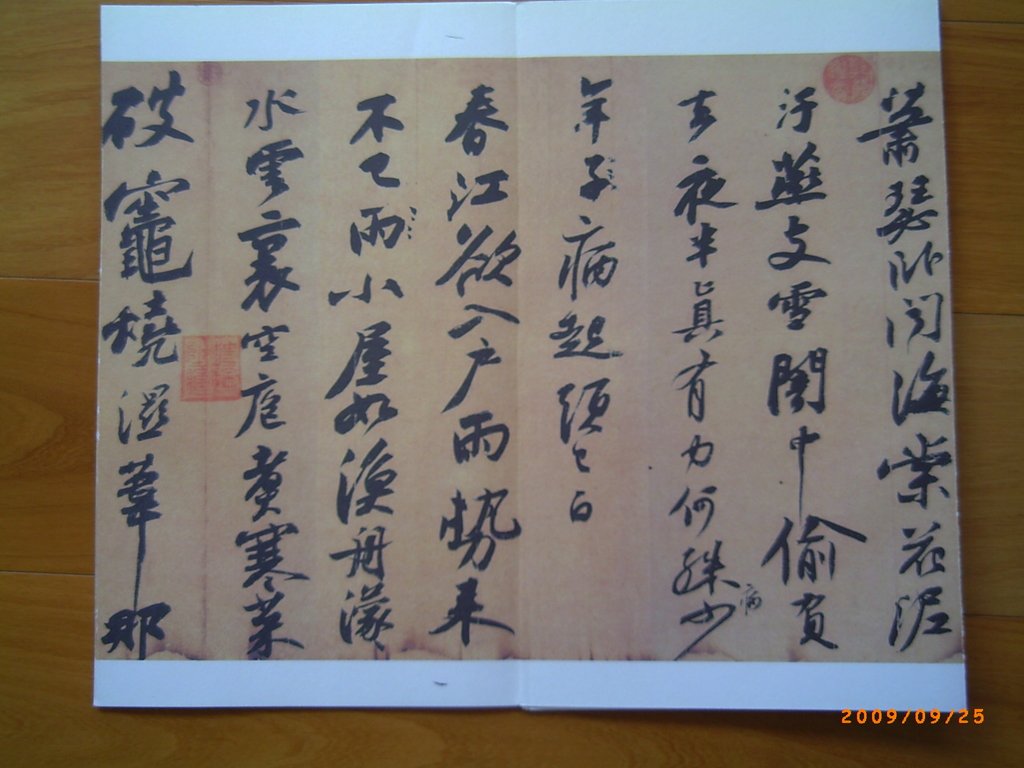 蕭瑟卧聞海棠花泥
汙燕支雪闇中偷負
去夜半真有力何殊少
病
年子病起頭已白
春江欲入户雨勢来
不已雨小屋如漁舟濛
水雲裏空庖煮寒菜
破竈燒濕葦那
2009/09/25